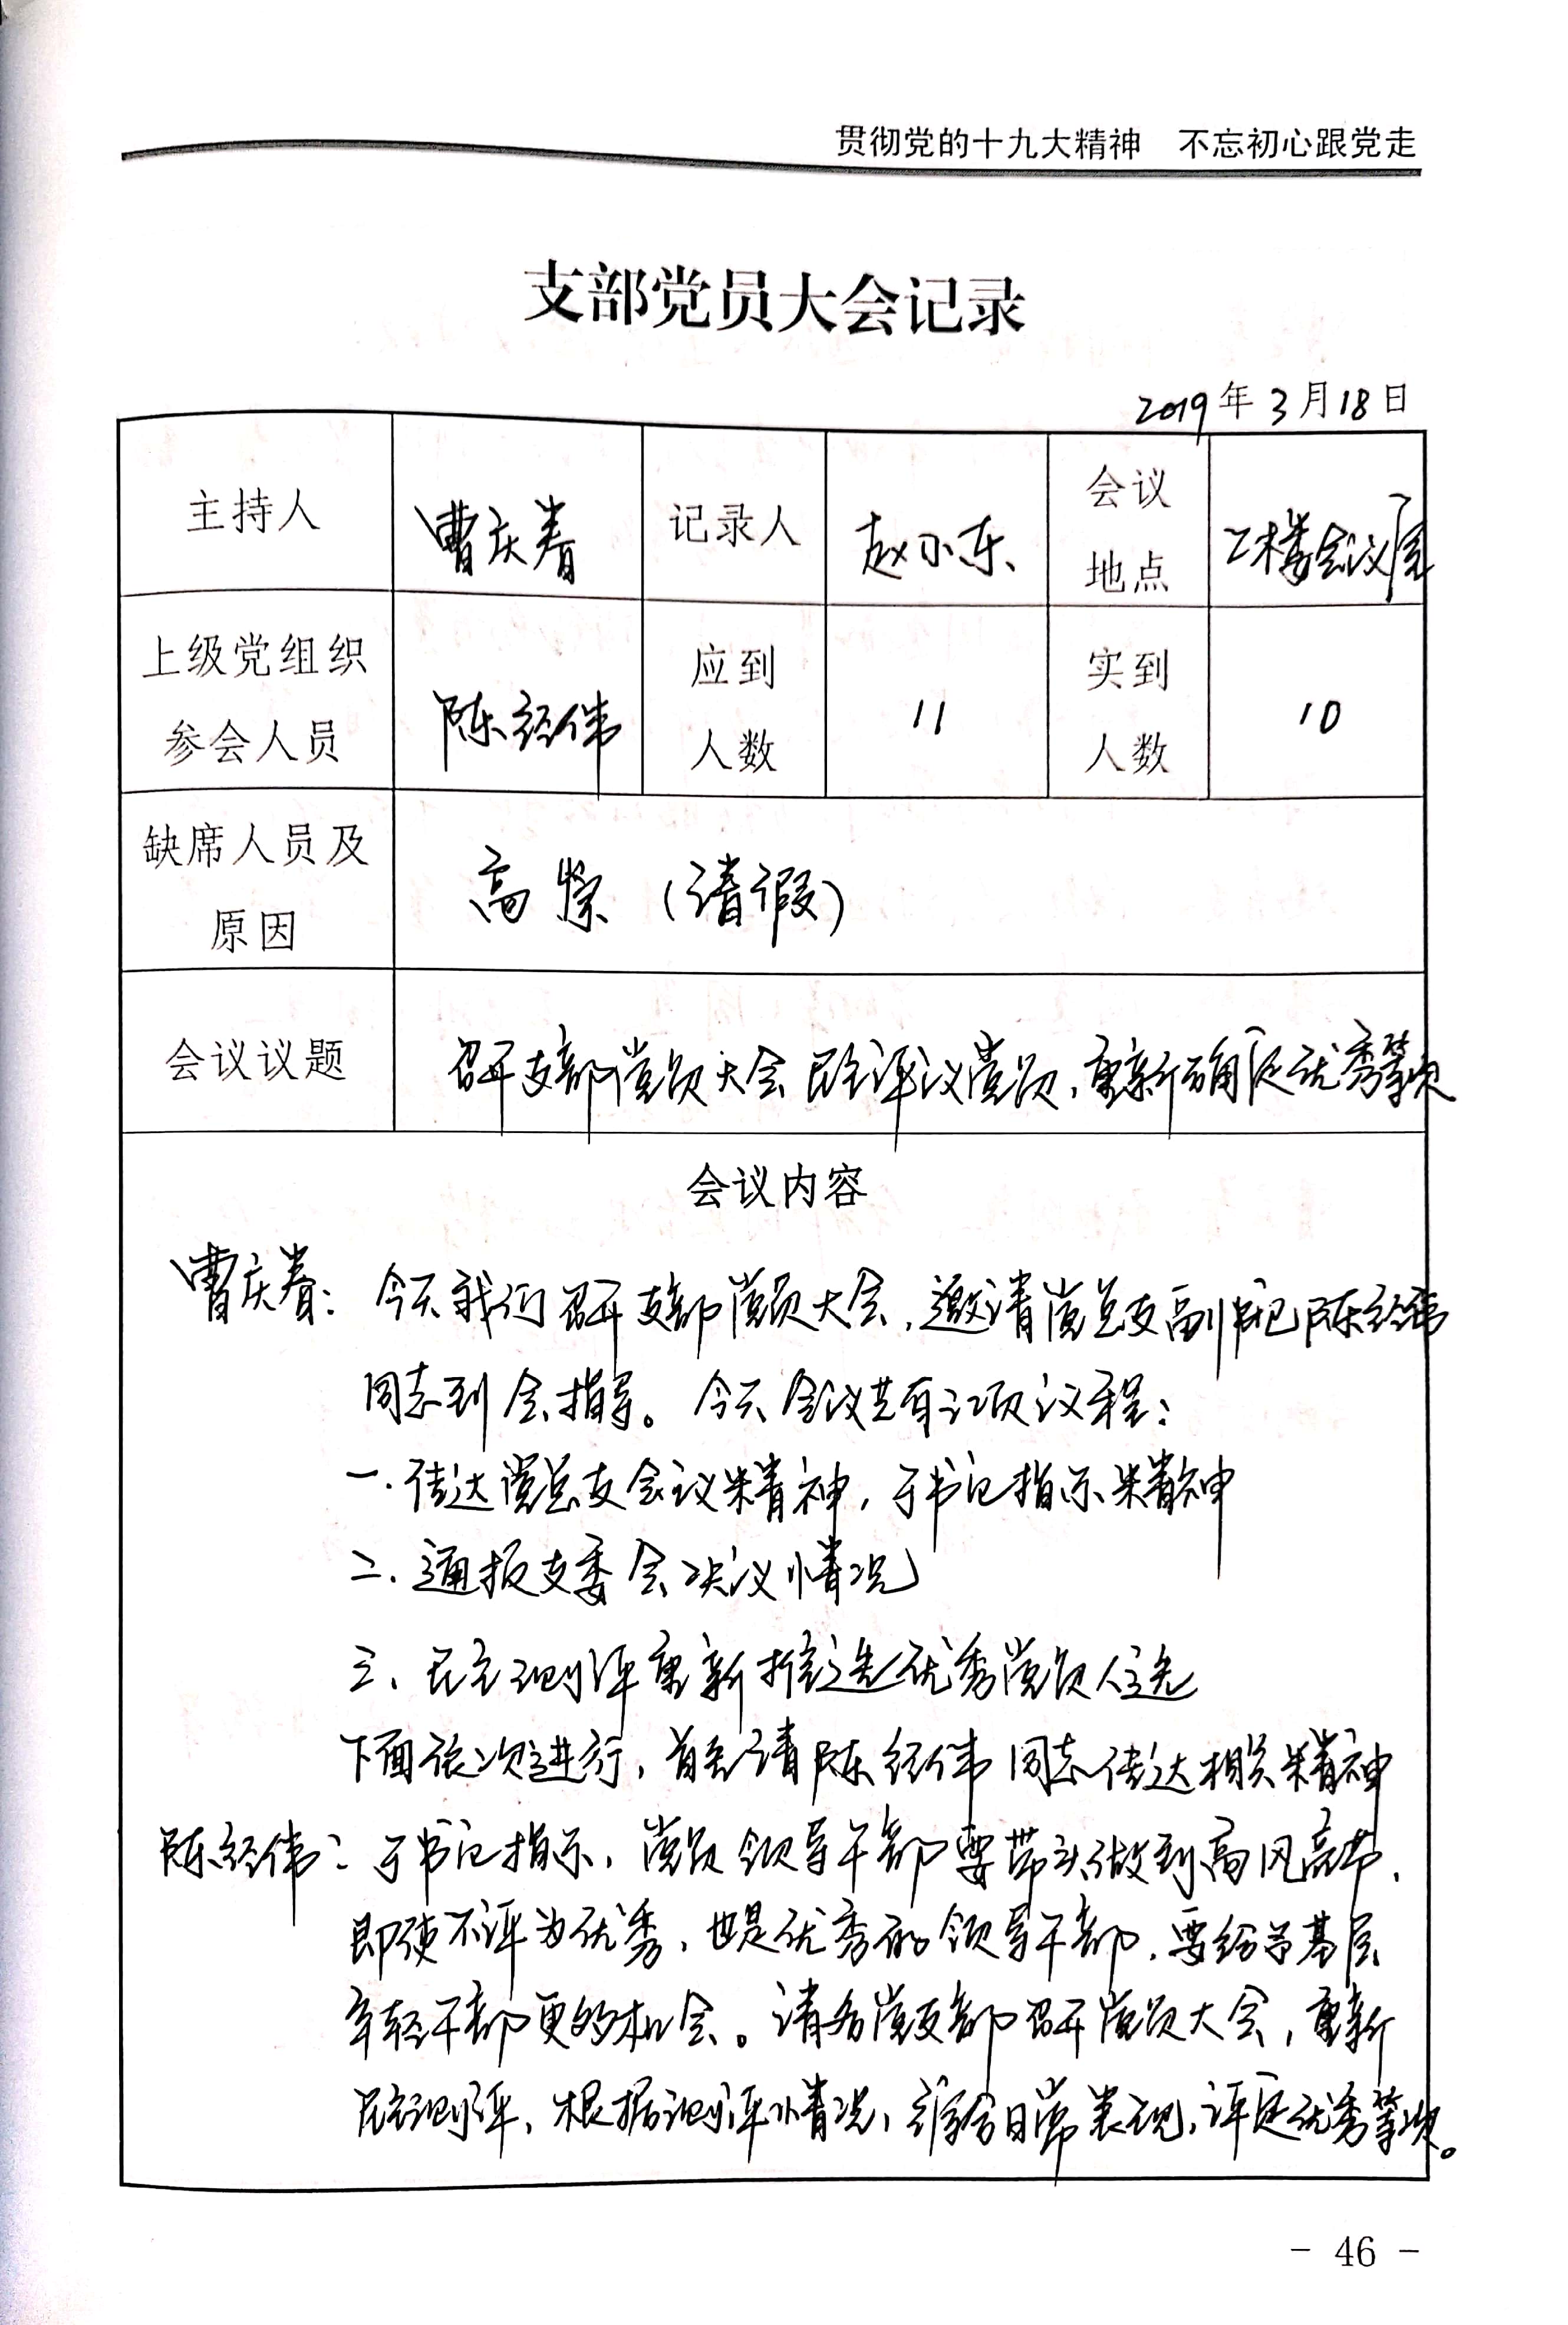 贯彻党的十九大精神 不忘初心跟党走
支部党员大会记录
2019年3月18日
主持人 曹庆春 记录人 赵小东 会议地点 二楼会议室
上级党组织参会人员 陈经伟 应到人数 11 实到人数 10
缺席人员及原因 高 (请假)
会议议题 召开支部党员大会民主评议党员,重新确定优秀等次
会议内容
曹庆春:今天我们召开支部党员大会,邀请党总支副书记陈经伟
同志到会指导。今天会议共有三项议程:
一.传达党总支会议精神,于书记指示精神
二.通报支委会决议情况
三、民主测评重新推选优秀党员人选
下面依次进行,首先请陈经伟同志传达相关精神
陈经伟:于书记指示,党员领导干部要带头做到高风亮节,
即使不评为优秀,也是优秀的领导干部,要给予基层
年轻干部更多机会。请各党支部召开党员大会,重新
民主测评,根据测评情况,结合日常表现,评定优秀等次。
- 46 -